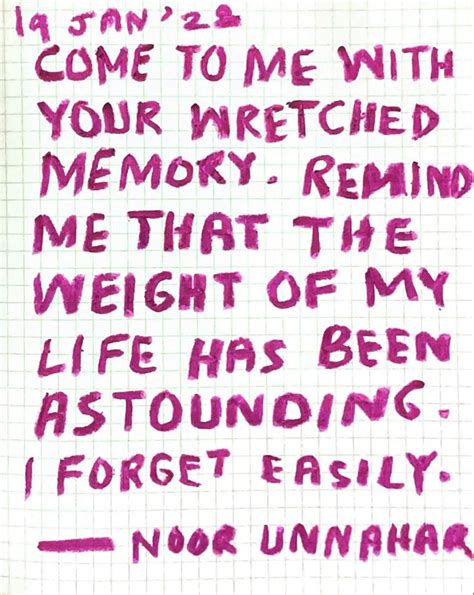 19 JAN '22
COME TO ME WITH
YOUR WRETCHED
MEMORY. REMIND
ME THAT THE
WEIGHT OF MY
LIFE HAS BEEN
ASTOUNDING.
I FORGET EASILY.
— NOOR UNNAHAR